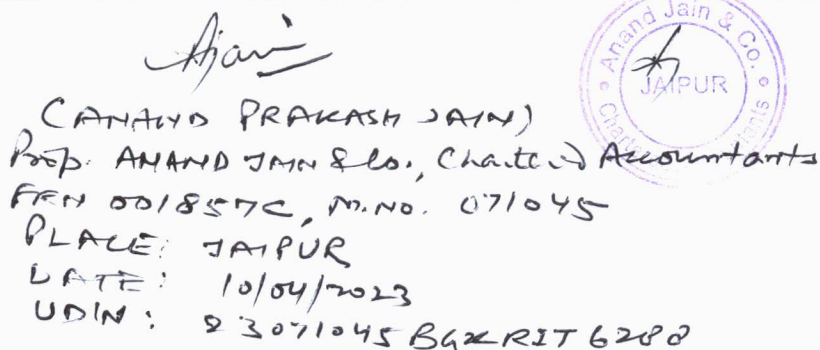 Ajain
Anand Jain & Co.
JAIPUR
Chartered Accountants
(ANAND PRAKASH JAIN)
Prop. ANAND JAIN & Co., Chartered Accountants
FRN 001857C, M.No. 071045
PLACE: JAIPUR
DATE: 10/04/2023
UDIN: 23071045